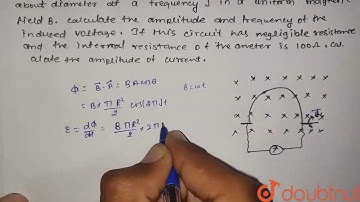 about diameter at a frequency f in a uniform magnetic
field B. calculate the amplitude and frequency of the
induced voltage. If this circuit has negligible resistance
and the internal resistance of the ameter is 100Ω. cal
culate the amplitude of current.
ϕ = B⃗.A⃗ = BA cosθ
θ = ωt
= B × πR²/2 cos(2πf)t
ε = dϕ/dt = BπR²/2 × 2π
doubtnut